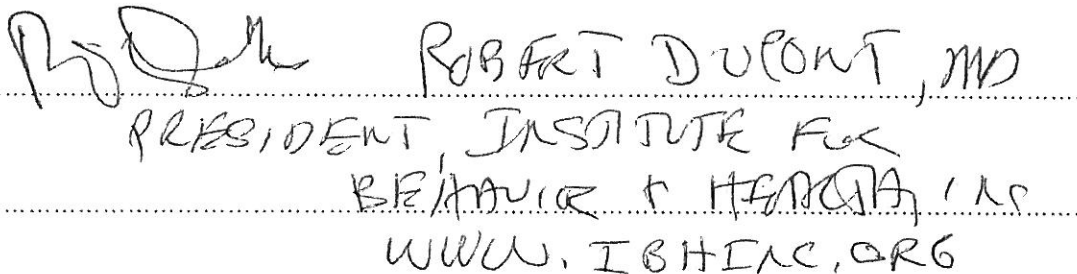 ROBERT DUPONT, MD
PRESIDENT, INSTITUTE FOR
BEHAVIOR & HEALTH, INC
WWW.IBHINC.ORG